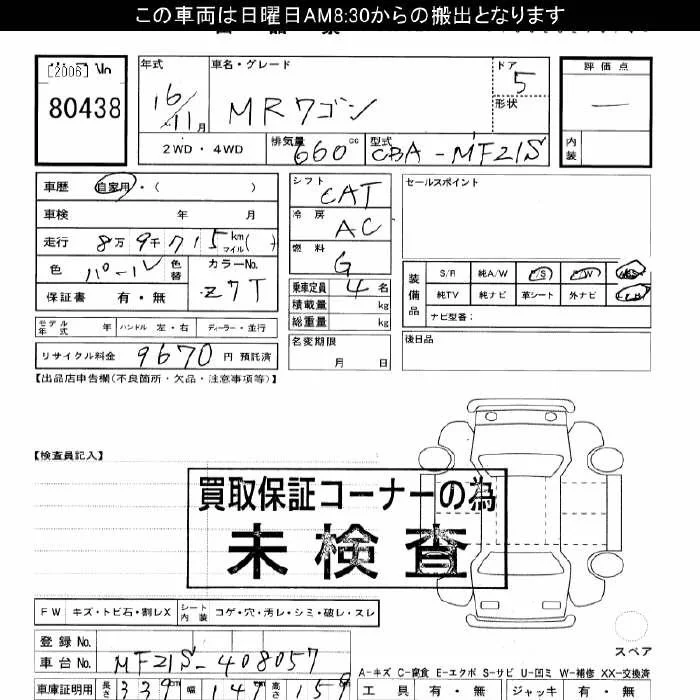 この車両は日曜日AM8:30からの搬出となります
[2006] No
80438
年式 16/11月
車名・グレード MRワゴン
ドア 5
形状
評価点 —
内装
2WD・4WD
排気量 660cc
型式 CBA-MF21S
車歴 自家用・( )
車検 年 月
走行 8万9千715km マイル( )
色 パール 色替
カラーNo. Z7T
保証書 有・無
シフト CAT
冷房 AC
燃料 G
乗車定員 4名
積載量 kg
総重量 kg
セールスポイント
装備品
S/R 純A/W P/S P/W ABS
純TV 純ナビ 革シート 外ナビ
ナビ型番:
モデル年式 年 ハンドル 左・右 ディーラー・並行
リサイクル料金 9670円 預託済
名変期限 月 日
後日品
【出品店申告欄(不良箇所・欠品・注意事項等)】
【検査員記入】
買取保証コーナーの為
未検査
FW キズ・トビ石・割レX シート内装 コゲ・穴・汚レ・シミ・破レ・スレ
登録No.
車台No. MF21S-408057
車庫証明用 長さ 339cm 幅 147 高さ 159
スペア
A-キズ C-腐食 E-エクボ S-サビ U-凹ミ W-補修 XX-交換済
工具 有・無 ジャッキ 有・無